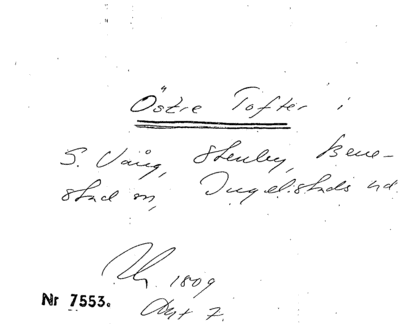 Östre Tofter i
S. Vång, Stenby, Bene-
stad sn, Ingelstads hd.
1809
Nr 7553.
Akt 7.